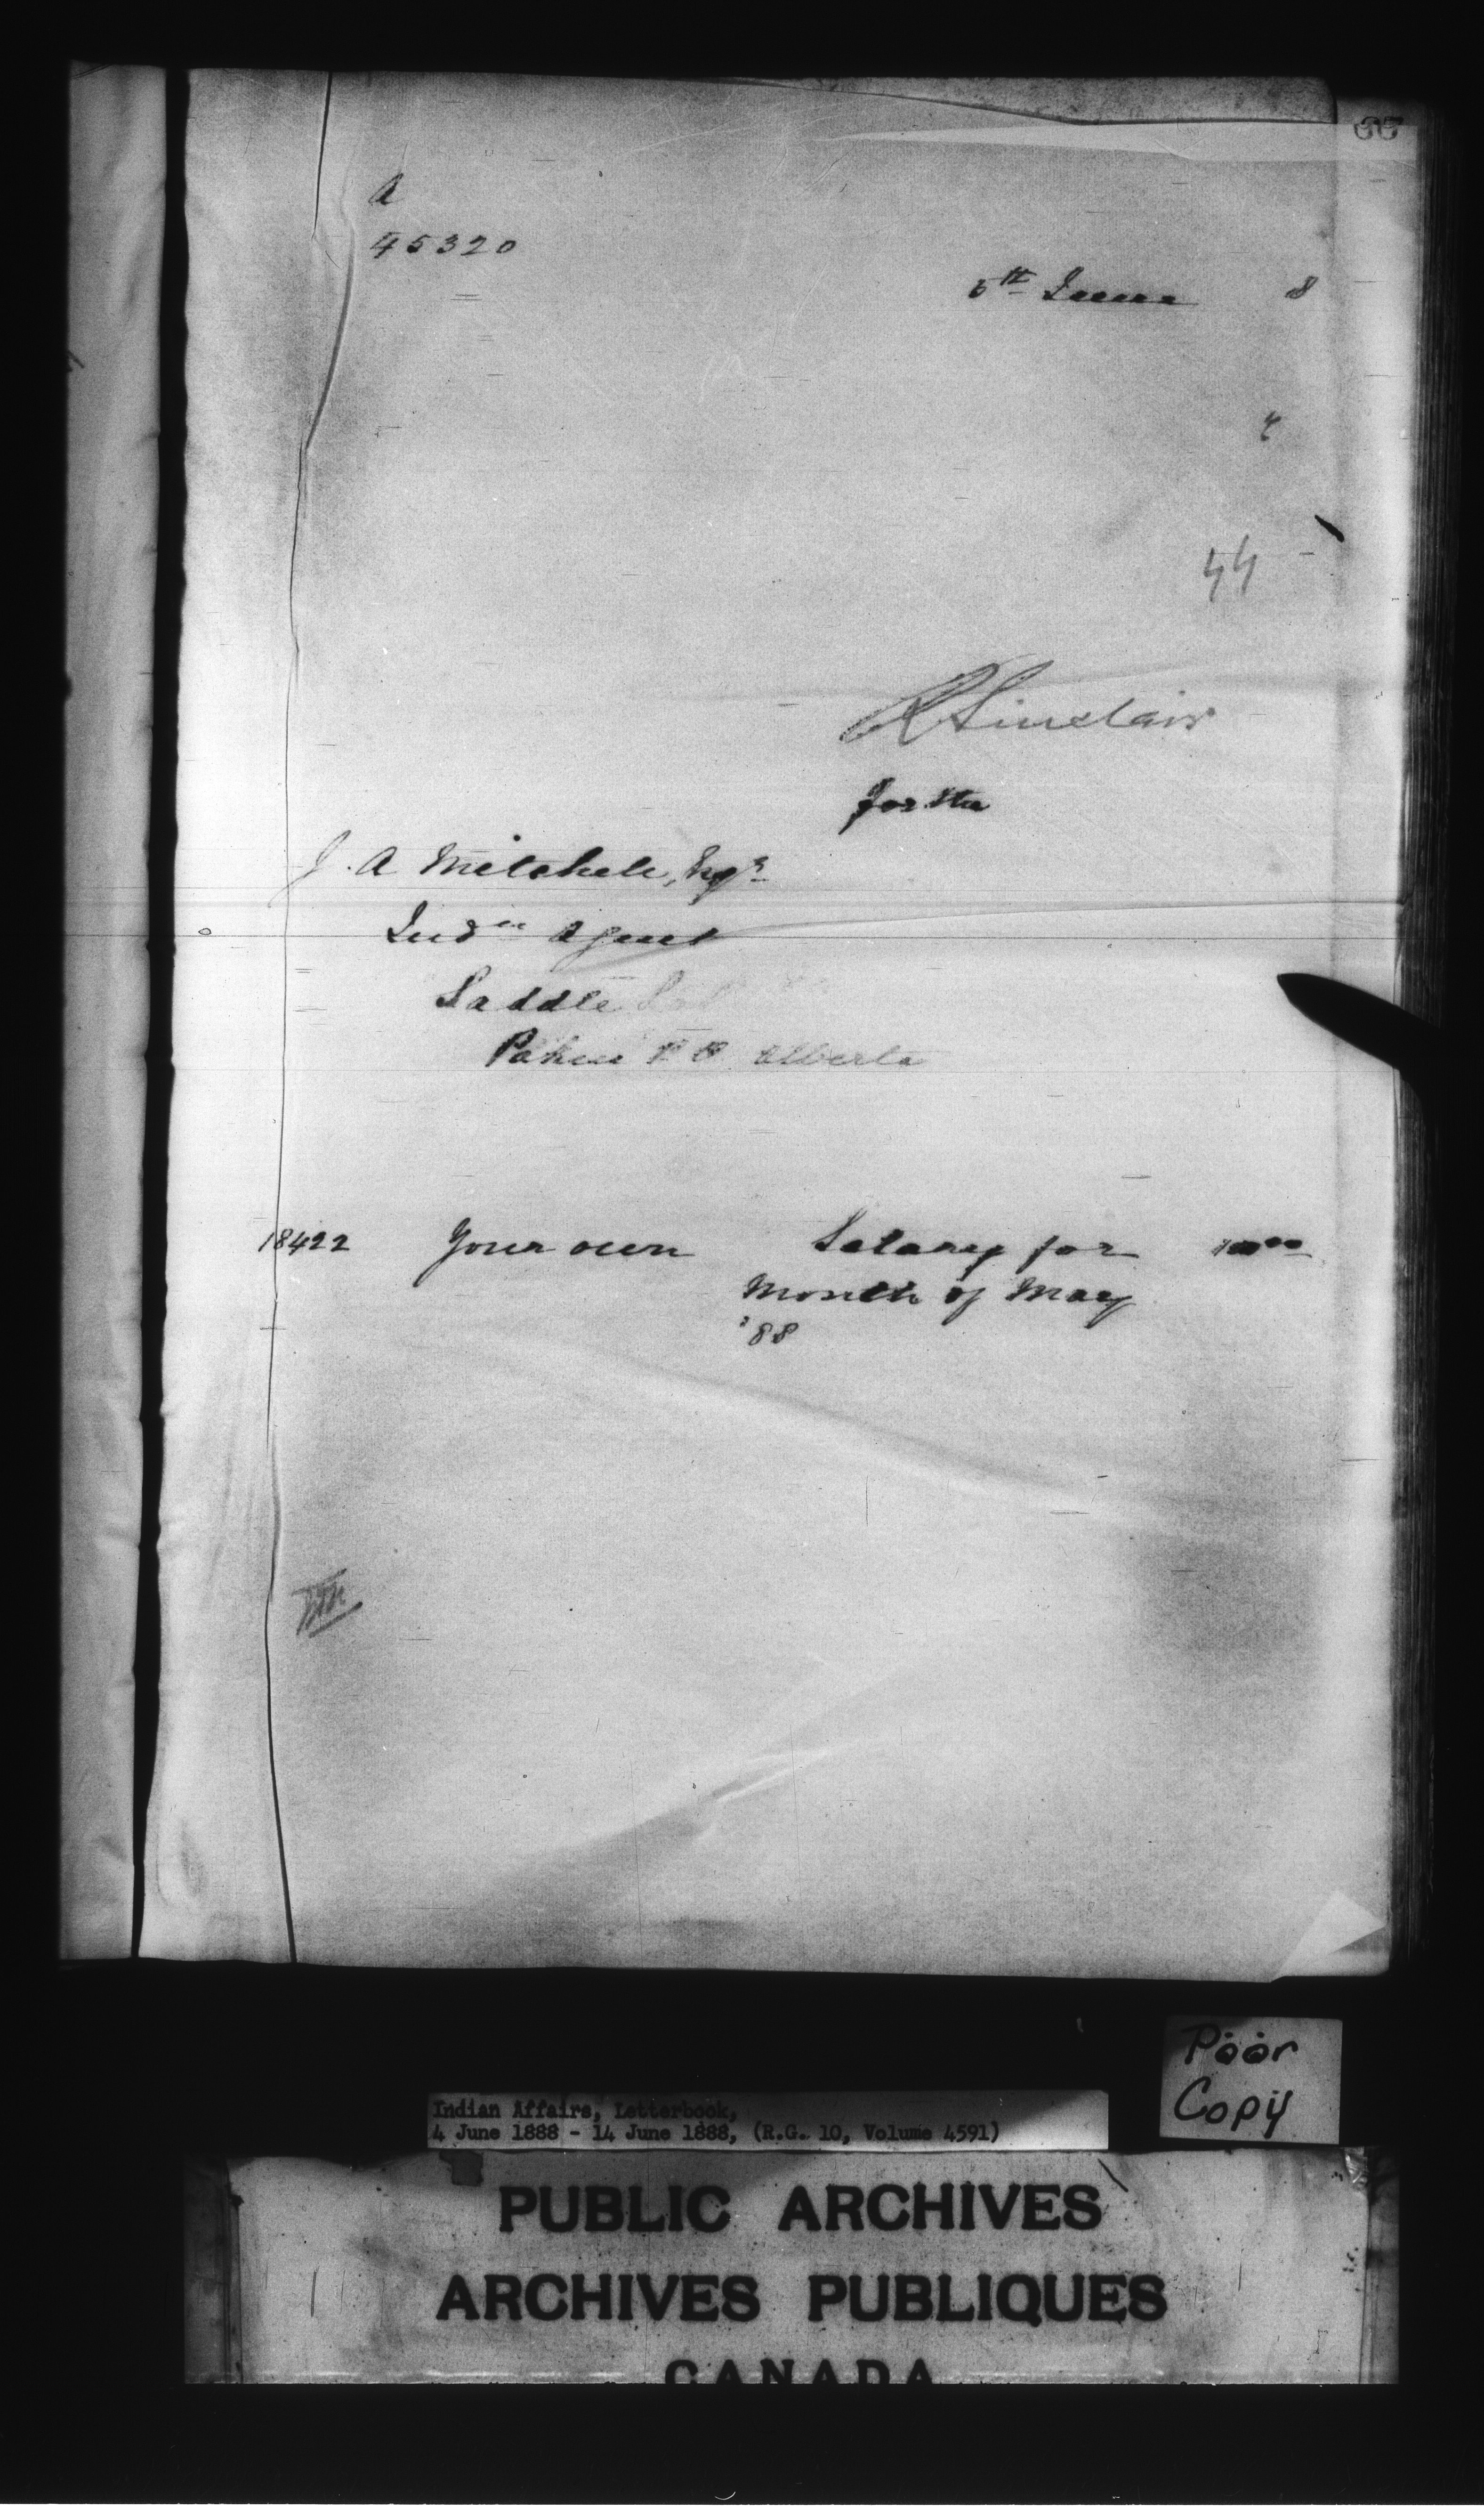 A
45320
5th June 8
44
R Sinclair
for the
J. A Mitchell, Esqr
Indn Agent
Saddle
Pakan P O Alberta
18422 Your own Salary for 100 00
Month of May
'88
Poor
Copy
Indian Affairs, Letterbook,
4 June 1888 - 14 June 1888, (R.G. 10, Volume 4591)
PUBLIC ARCHIVES
ARCHIVES PUBLIQUES
CANADA